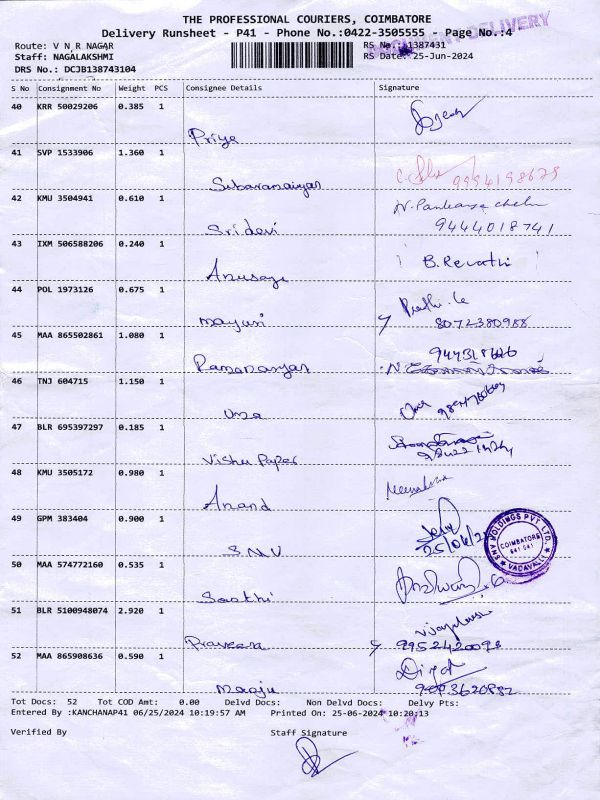 THE PROFESSIONAL COURIERS, COIMBATORE
Delivery Runsheet - P41 - Phone No.:0422-3505555 - Page No.:4
DOCUMENT DELIVERY
Route: V N R NAGAR
RS No.:1387431
Staff: NAGALAKSHMI
RS Date: 25-Jun-2024
DRS No.: DCJB138743104
S No Consignment No Weight PCS Consignee Details Signature
40 KRR 50029206 0.385 1
Priya
41 SVP 1533906 1.360 1
9994198675
42 KMU 3504941 0.610 1
Sridevi
9444018741
43 IXM 506588206 0.240 1
B. Revathi
Anusaya
44 POL 1973126 0.675 1
Mayuri
8072380988
45 MAA 865502861 1.080 1
Ramanaryan
46 TNJ 604715 1.150 1
Uma
47 BLR 695397297 0.185 1
Vishu Paper
48 KMU 3505172 0.980 1
Anand
49 GPM 383404 0.900 1
S.N.V
SNV HOLDINGS PVT. LTD.
COIMBATORE
641 041
VADAVALLI
50 MAA 574772160 0.535 1
51 BLR 5100948074 2.920 1
Praveena
9952420098
52 MAA 865908636 0.590 1
Tot Docs: 52 Tot COD Amt: 0.00 Delvd Docs: Non Delvd Docs: Delvy Pts:
Entered By :KANCHANAP41 06/25/2024 10:19:57 AM Printed On: 25-06-2024 10:20:13
Verified By Staff Signature